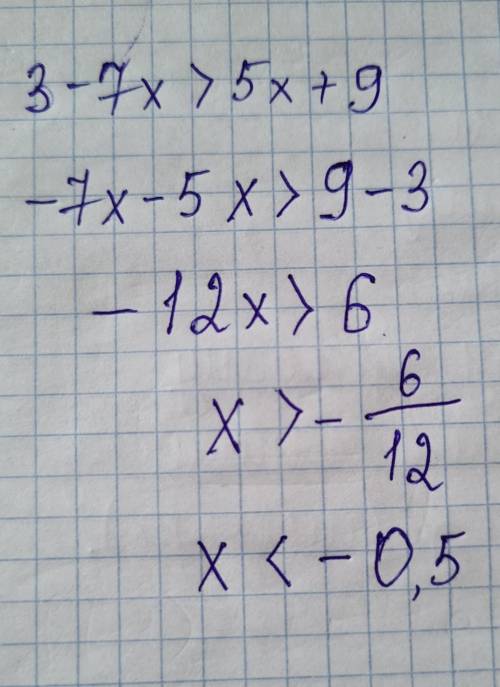 3-7x>5x+9
-7x-5x>9-3
-12x>6
x>-6/12
x<-0,5